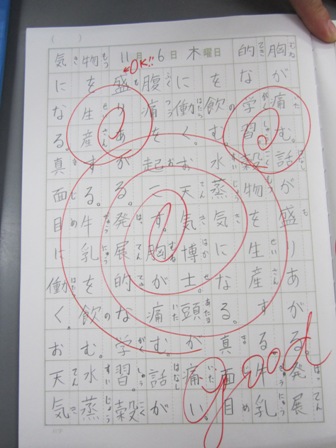 11月6日 木曜日
胸が痛む。話が盛りあがる。発展
的な学習。穀物を生産する。牛乳
を飲む。水蒸気になる。真面目
に働く。お天気博士。頭が痛い。
腹痛を起こす。胸が痛む。話が
盛りあがる。発展的な学習。穀
物を生産する。牛乳を飲む。水蒸
気になる。真面目に働く。お天気
OK!!
good